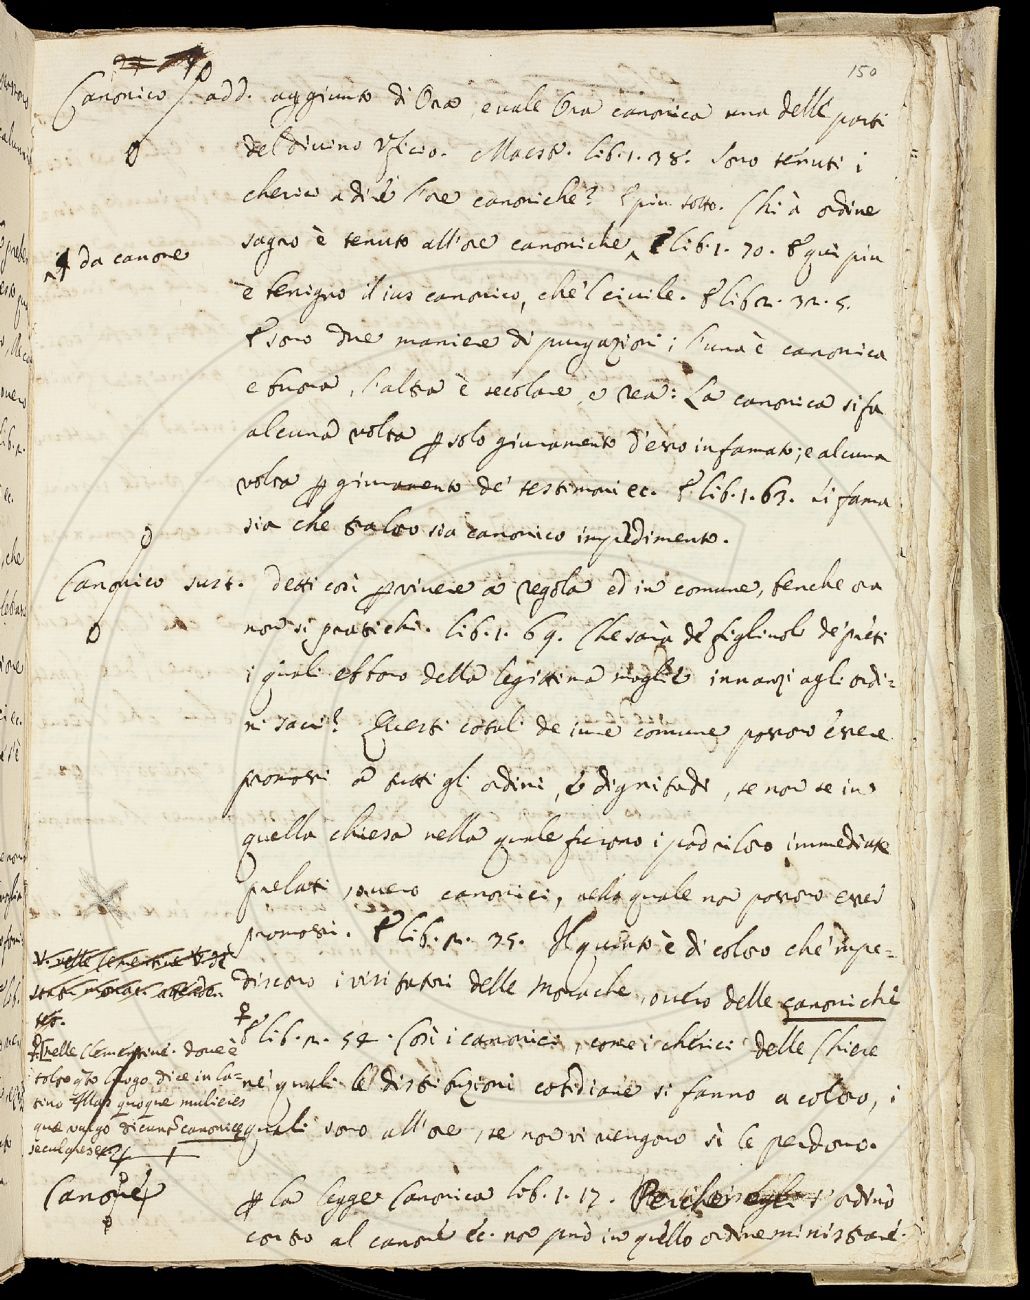 150
Canonico add. aggiunto di Ora, e vale Ora canonica una delle parti
del divino Vficio. Maestr. lib. 1. 38. Sono tenuti i
cherici a dire l'ore canoniche? E piu sotto. Chi à ordine
sagro è tenuto all'ore canoniche E lib. 1. 70. E qui piu
^ da canone
è benigno il ius canonico, che'l civile. E lib. 2. 32. 5.
E sono due maniere di purgazioni; l'una è canonica
e buona, l'altra è secolare, e rea: La canonica si fa
alcuna volta p solo giuramento d'esso infamato; e alcuna
volta p giuramento de' testimoni ec. E lib. 1. 63. Li fama
sia che tra loro sia canonico impedimento.
Canonico sust. detti così p vivere a regola ed in comune, benche ora
non si pratichi. lib. 1. 69. Che sarà de' figliuoli de' preti
i quali ebbono della legittima moglie innanzi agli ordi=
ni sacri? Questi cotali de iure comune possono essere
promossi a tutti gli ordini, e dignitadi, se non se in
quella chiesa nella quale furono i padri loro immediate
prelati, ovvero canonici, nella quale no possono esser
promossi. E lib. 2. 35. Il quinto è di coloro che impe=
discono i visitatori delle Monache, ovvero delle canoniche
E lib. 2. 54. Così i canonici, come i cherici delle Chiese
ne' quali le distribuzioni cotidiane si fanno a coloro, i
quali sono all'ore, se non vi vengono si le perdono.
nelle Clementine. dove è
tolto qto luogo dice in la=
tino Illas quoque mulieres
quæ vulgo dicunt canonicæ
seculares ec.
Canone
p la legge Canonica lib. 1. 17. Perche egli s'ordinò
contro al canone ec. non può in quello ordine ministrare.